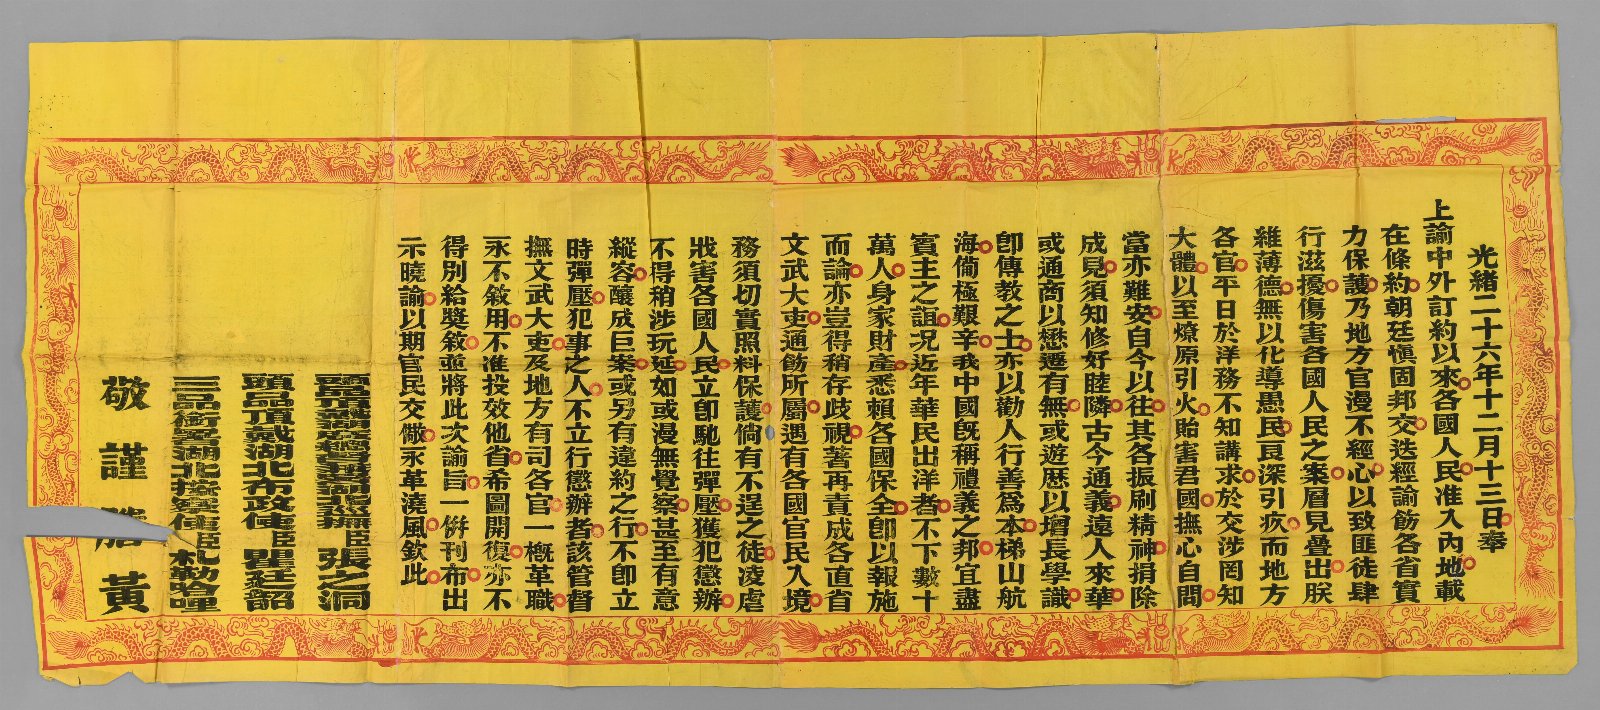 光緒二十六年十二月十三日奉
上諭中外訂約以來各國人民准入內地載
在條約朝廷慎固邦交迭經諭飭各省實
力保護乃地方官漫不經心以致匪徒肆
行滋擾傷害各國人民之案層見疊出朕
維薄德無以化導愚民良深引疚而地方
各官平日於洋務不知講求於交涉罔知
大體以至燎原引火貽害君國撫心自問
當亦難安自今以往其各振刷精神捐除
成見須知修好睦隣古今通義遠人來華
或通商以懋遷有無或遊歷以增長學識
卽傳教之士亦以勸人行善爲本梯山航
海備極艱辛我中國旣稱禮義之邦宜盡
賓主之誼况近年華民出洋者不下數十
萬人身家財產悉賴各國保全卽以報施
而論亦豈得稍存歧視著再責成各直省
文武大吏通飭所屬遇有各國官民入境
務須切實照料保護倘有不逞之徒凌虐
戕害各國人民立卽馳往彈壓獲犯懲辦
不得稍涉玩延如或漫無覺察甚至有意
縱容釀成巨案或另有違約之行不卽立
時彈壓犯事之人不立行懲辦者該管督
撫文武大吏及地方有司各官一槪革職
永不敘用不准投效他省希圖開復亦不
得別給獎敘並將此次諭旨一併刊布出
示曉諭以期官民交儆永革澆風欽此
頭品頂戴湖廣總督兼署湖北巡撫臣張之洞
頭品頂戴湖北布政使臣瞿廷韶
三品銜署湖北按察使臣札勒哈哩
敬謹謄黃